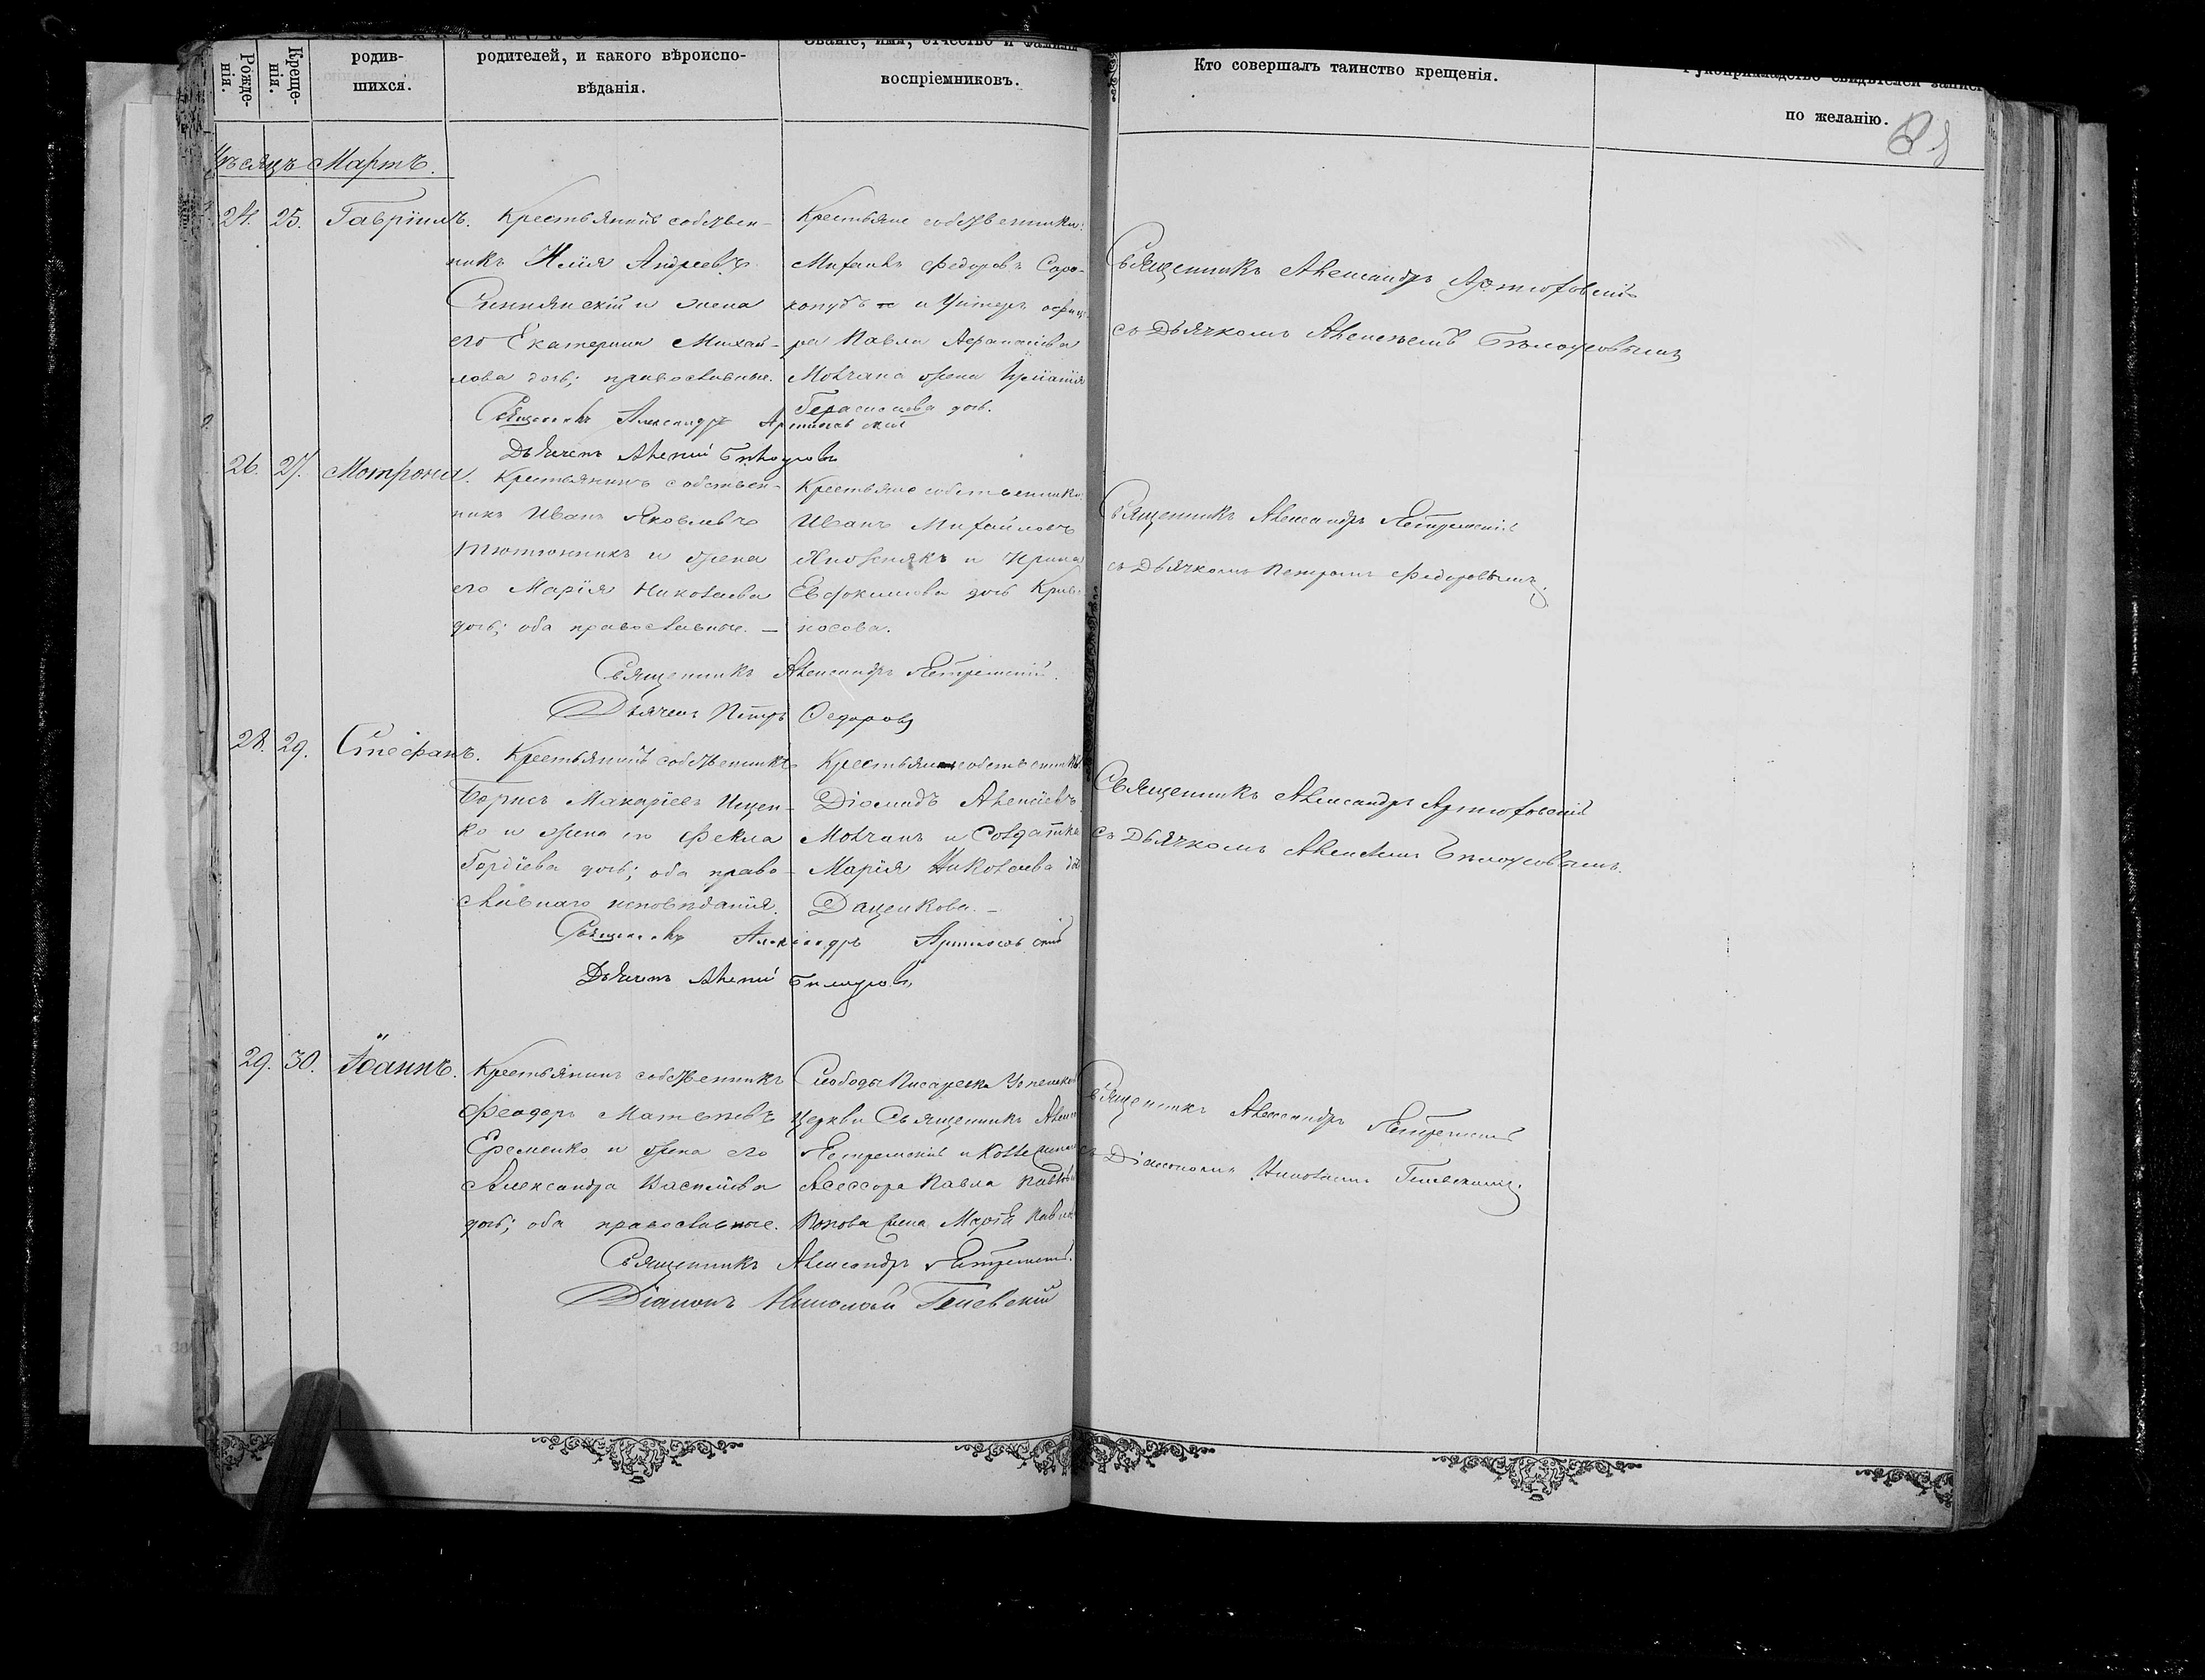 Рожде-
нія.
Креще-
нія.
родив-
шихся.
родителей, и какого вѣроиспо-
вѣданія.
Званіе, имя, отчество и фамилія
воспріемниковъ.
Кто совершалъ таинство крещенія.
Рукоприкладство свидѣтелей записи
по желанію.
Мѣсяцъ Мартъ.
24. 25. Гавріилъ.
Крестьянинъ собствен-
никъ Илія Андреевъ
и жена
его Екатерина Михай-
лова дочь; православные.
Крестьяне собственники:
Михаилъ Федоровъ Соро-
копудъ и Унтеръ офице-
ра Павла Афанасіева
Молчана жена
Герасимова дочь.
Священникъ Александръ Артюховскій
съ Дьячкомъ Алексѣемъ Бѣлоусовымъ
Священникъ Александръ Артюховскій
Дьячекъ Алексій Бѣлоусовъ
26. 27. Мотрона.
Крестьянинъ собствен-
никъ Иванъ Яковлевъ
Тютюнникъ и жена
его Марія Николаева
дочь; оба православные. —
Крестьяне собственники:
Иванъ Михайловъ
и Ирина
Евфокимова дочь Криво-
носова.
Священникъ Александръ Ястремскій
съ Дьячкомъ Петромъ Федоровымъ.
Священникъ Александръ Ястремскій.
Дьячекъ Петръ Федоровъ
28. 29. Стефанъ.
Крестьянинъ собственникъ
Борисъ Макаріевъ Ищен-
ко и жена его Фекла
Гордіева дочь; оба право-
славнаго исповѣданія.
Крестьянинъ собственникъ
Діомидъ Алексіевъ
Молчанъ и Солдатка
Марія Николаева дочь
Даценкова. —
Священникъ Александръ Артюховскій
съ Дьячкомъ Алексѣемъ Бѣлоусовымъ.
Священникъ Александръ Артюховскій
Дьячекъ Алексій Бѣлоусовъ
29. 30. Іоаннъ.
Крестьянинъ собственникъ
Феодоръ Матвѣевъ
Еременко и жена его
Александра Василіева
дочь; оба православные.
Слободы Писаревки Успенской
Церкви Священникъ
Ястремскій и Коллежскаго
Асессора Павла
Попова жена Марія
Священникъ Александръ Ястремскій
съ Діакономъ Николаемъ
Священникъ Александръ Ястремскій.
Діаконъ Николай